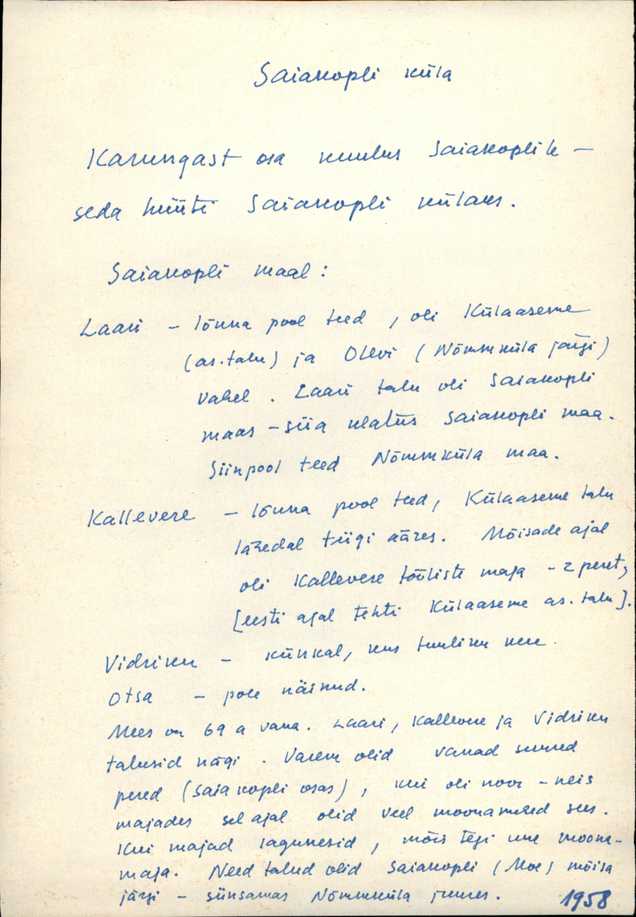 Saiakopli küla
Karungast osa kuulus Saiakoplile -
seda hüüti Saiakopli külaks.
Saiakopli maal:
Laari - lõuna pool teed, oli Külaaseme
(as. talu) ja Olevi (Nõmmküla järgi)
vahel. Laari talu oli Saiakopli
maas - siia ulatus Saiakopli maa.
Siinpool teed Nõmmküla maa.
Kallevere - lõuna pool teed, Külaaseme talu
lähedal tiigi ääres. Mõisade ajal
oli Kallevere tööliste maja - 2 peret,
[eesti ajal tehti Külaaseme as. talu].
Vidriku - künkal, kus tuuliku
Otsa - pole näinud.
Mees on 69 a vana. Laari, Kallevere ja Vidriku
talusid nägi. Varem olid vanad suured
pered (Saiakopli osas), kui oli noor - neis
majades sel ajal olid veel moonamehed sees.
Kui majad lagunesid, mõis tegi uue moona-
maja. Need talud olid Saiakopli (Moe) mõisa
järgi - siinsamas Nõmmküla juures.
1958